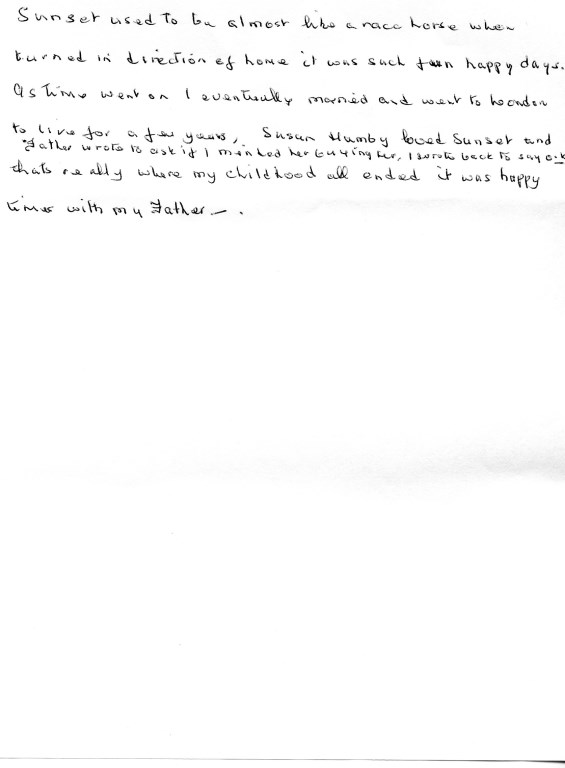 Sunset used to be almost like a race horse when
turned in direction of home it was such fun happy days.
As time went on I eventually married and went to London
to live for a few years, Susan Humby loved Sunset and
Father wrote to ask if I minded her buying her, I wrote back to say o.k
thats really where my childhood all ended it was happy
times with my Father — .